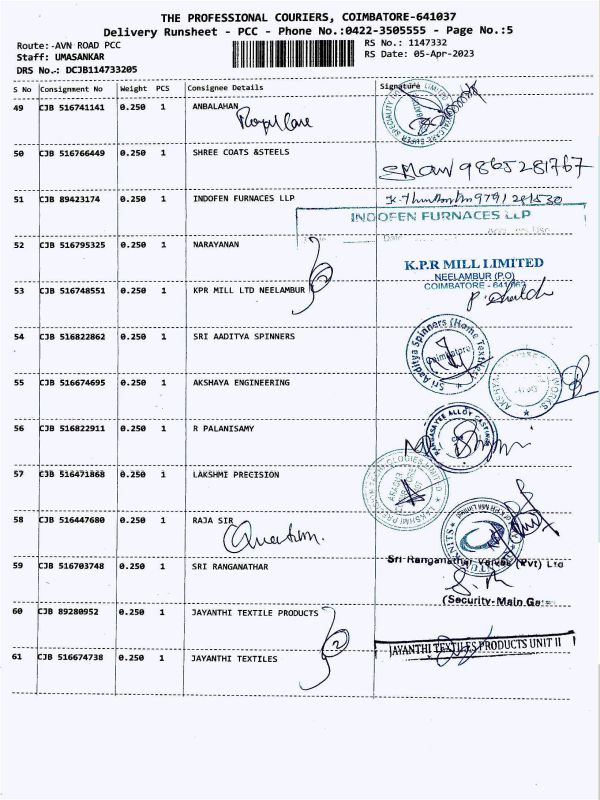 THE PROFESSIONAL COURIERS, COIMBATORE-641037
Delivery Runsheet - PCC - Phone No.:0422-3505555 - Page No.:5
Route:-AVN ROAD PCC RS No.: 1147332
Staff: UMASANKAR RS Date: 05-Apr-2023
DRS No.: DCJB114733205
S No Consignment No Weight PCS Consignee Details Signature
49 CJB 516741141 0.250 1 ANBALAHAN
Royal Care
50 CJB 516766449 0.250 1 SHREE COATS &STEELS
9865281767
51 CJB 89423174 0.250 1 INDOFEN FURNACES LLP
INDOFEN FURNACES LLP
Date
52 CJB 516795325 0.250 1 NARAYANAN
K.P.R MILL LIMITED
NEELAMBUR (P.O)
53 CJB 516748551 0.250 1 KPR MILL LTD NEELAMBUR COIMBATORE - 641062
54 CJB 516822862 0.250 1 SRI AADITYA SPINNERS
Sri Aaditya Spinners (Home Textiles)
Coimbatore
55 CJB 516674695 0.250 1 AKSHAYA ENGINEERING
AKSHAYA WORKS
56 CJB 516822911 0.250 1 R PALANISAMY
ALLOY CASTINGS
57 CJB 516471868 0.250 1 LAKSHMI PRECISION
LAKSHMI PRECISION TECHNOLOGIES LIMITED
58 CJB 516447680 0.250 1 RAJA SIR
Quantum.
59 CJB 516703748 0.250 1 SRI RANGANATHAR
Sri Ranganathar Valves (Pvt) Ltd
(Security-Main Gate
60 CJB 89280952 0.250 1 JAYANTHI TEXTILE PRODUCTS
2
JAYANTHI TEXTILES PRODUCTS UNIT II
61 CJB 516674738 0.250 1 JAYANTHI TEXTILES